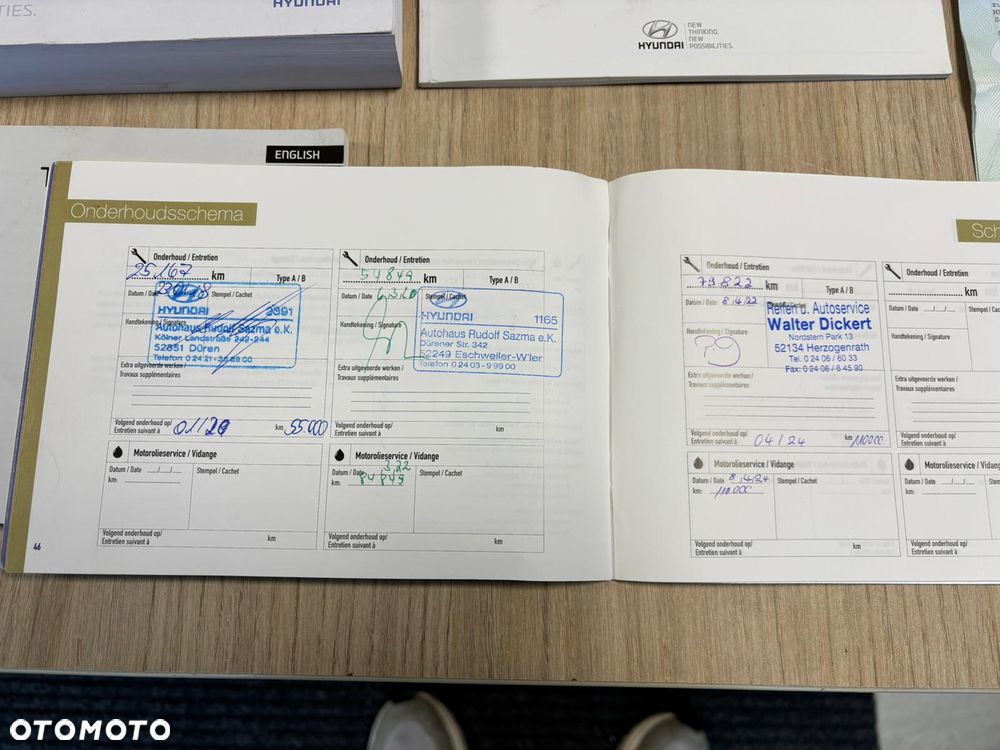 TIES.
HYUNDAI
HYUNDAI
NEW
THINKING.
NEW
POSSIBILITIES.
ENGLISH
Onderhoudsschema
Onderhoud / Entretien
25.167 km
Type A / B
Datum / Date
Stempel / Cachet
HYUNDAI 2391
Autohaus Rudolf Sazma e.K.
Kölner Landstraße 242-244
52351 Düren
Handtekening / Signature
Extra uitgevoerde werken /
Travaux supplémentaires
Volgend onderhoud op/
Entretien suivant à
01/20
km 55.000
Motorolieservice / Vidange
Datum / Date
Stempel / Cachet
km:
Volgend onderhoud op/
Entretien suivant à
km
46
Onderhoud / Entretien
54849 km
Type A / B
Datum / Date
Stempel / Cachet
HYUNDAI 1165
Autohaus Rudolf Sazma e.K.
Dürener Str. 342
52249 Eschweiler-W'ler
Telefon 0 24 03 - 9 99 00
Handtekening / Signature
Extra uitgevoerde werken /
Travaux supplémentaires
Volgend onderhoud op/
Entretien suivant à
km
Motorolieservice / Vidange
Datum / Date 3.22
Stempel / Cachet
km: 84849
Volgend onderhoud op/
Entretien suivant à
km
Sch
Onderhoud / Entretien
79822 km
Type A / B
Datum / Date 8.4.22
Reifen u. Autoservice
Walter Dickert
Nordstern Park 13
52134 Herzogenrath
Tel. 0 24 06 / 60 33
Fax: 0 24 06 / 6 45 90
Handtekening / Signature
Extra uitgevoerde werken /
Travaux supplémentaires
Volgend onderhoud op/
Entretien suivant à
04/24
km 110000
Motorolieservice / Vidange
Datum / Date 8.4.24
Stempel / Cachet
km: 110000
Volgend onderhoud op/
Entretien suivant à
km
Onderhoud / Entretien
km
Datum / Date
Stempel / Cachet
Handtekening / Signature
Extra uitgevoerde werken /
Travaux supplémentaires
Volgend onderhoud op/
Entretien suivant à
km
Motorolieservice / Vidange
Datum / Date
Stempel / Cachet
km:
Volgend onderhoud op/
Entretien suivant à
km
OTOMOTO